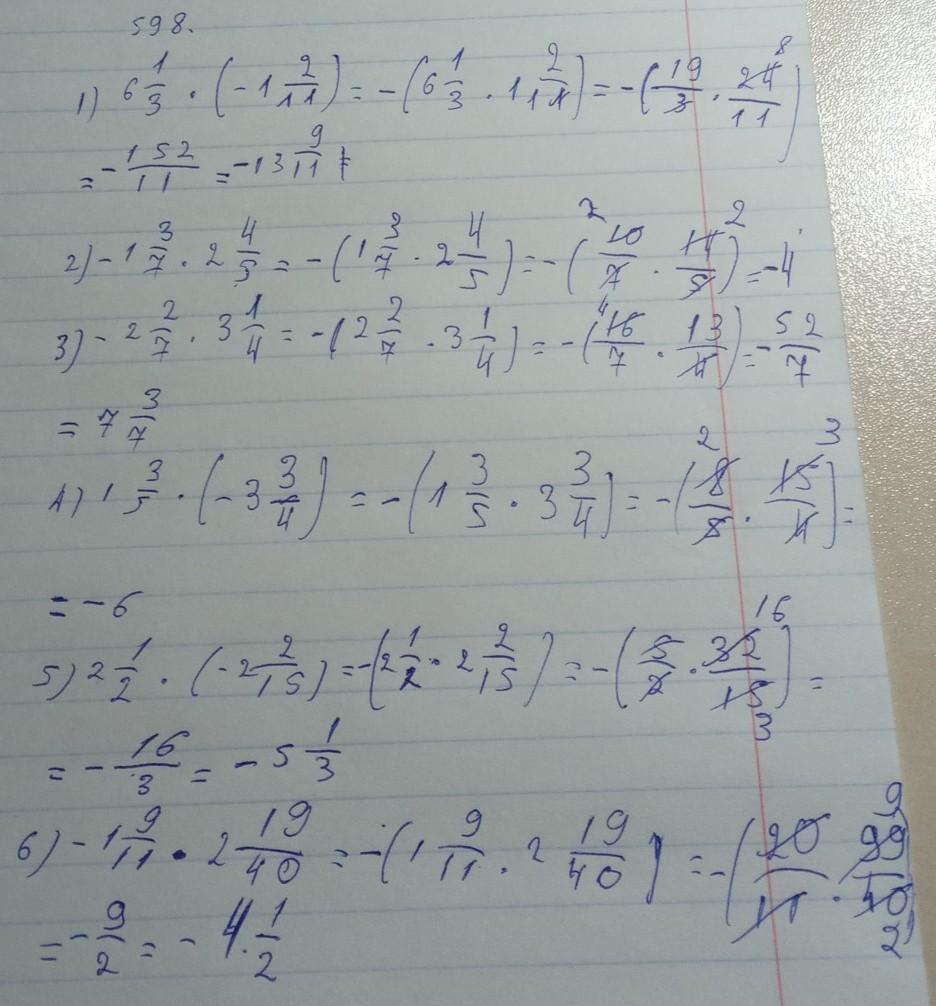 598.
1) 6 1/3 · (-1 2/11) = -(6 1/3 · 1 2/11) = -(19/3 · 24/11) 8
= -152/11 = -13 9/11
2) -1 3/7 · 2 4/5 = -(1 3/7 · 2 4/5) = -(2 10/7 · 14/5 2) = -4
3) -2 2/7 · 3 1/4 = -(2 2/7 · 3 1/4) = -(4 16/7 · 13/4) = -52/7
= 7 3/7
4) 1 3/5 · (-3 3/4) = -(1 3/5 · 3 3/4) = -(8/5 2 · 15/4 3) =
= -6
5) 2 1/2 · (-2 2/15) = -(2 1/2 · 2 2/15) = -(5/2 · 32/15 16 3) =
= -16/3 = -5 1/3
6) -1 9/11 · 2 19/40 = -(1 9/11 · 2 19/40) = -(20/11 · 99/40 9 2)
= -9/2 = -4 1/2